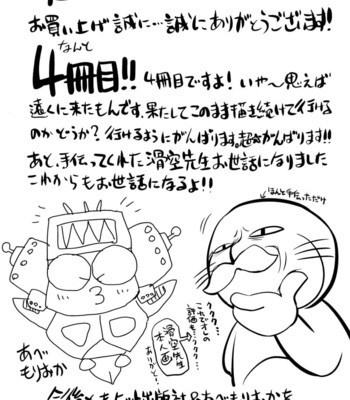 お買い上げ誠に…誠にありがとうございます!
なんと
4冊目!!4冊目ですよ!いや〜思えば
遠くに来たもんです。果たしてこのまま描き続けて行ける
のかどうか?行けるようにがんばります。超がんばります!!
あと、手伝ってくれた滑空先生お世話になりました
これからもお世話になるよ!!
←ほんと手伝っただけ
ククク…
これでオレの
評価も…
ククク…
滑空先生
本人画
ありがと〜
あべ
もりおか